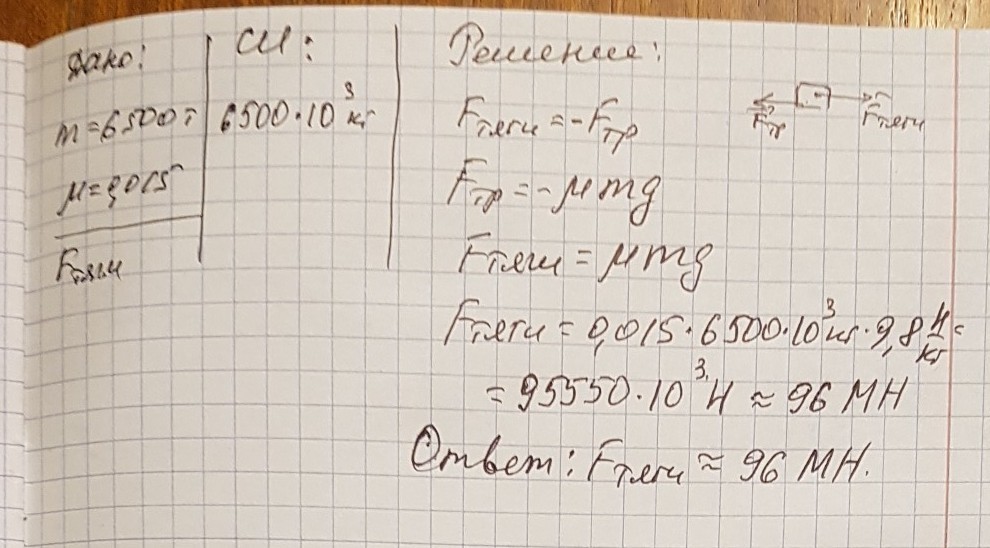 Дано:
m=6500т
μ=0,015
Fтяги
СИ:
6500·10³ кг
Решение:
Fтр Fтяги
Fтяги = -Fтр
Fтр = -μmg
Fтяги = μmg
Fтяги = 0,015·6500·10³кг·9,8 Н/кг =
= 95550·10³ Н ≈ 96 МН
Ответ: Fтяги ≈ 96 МН.